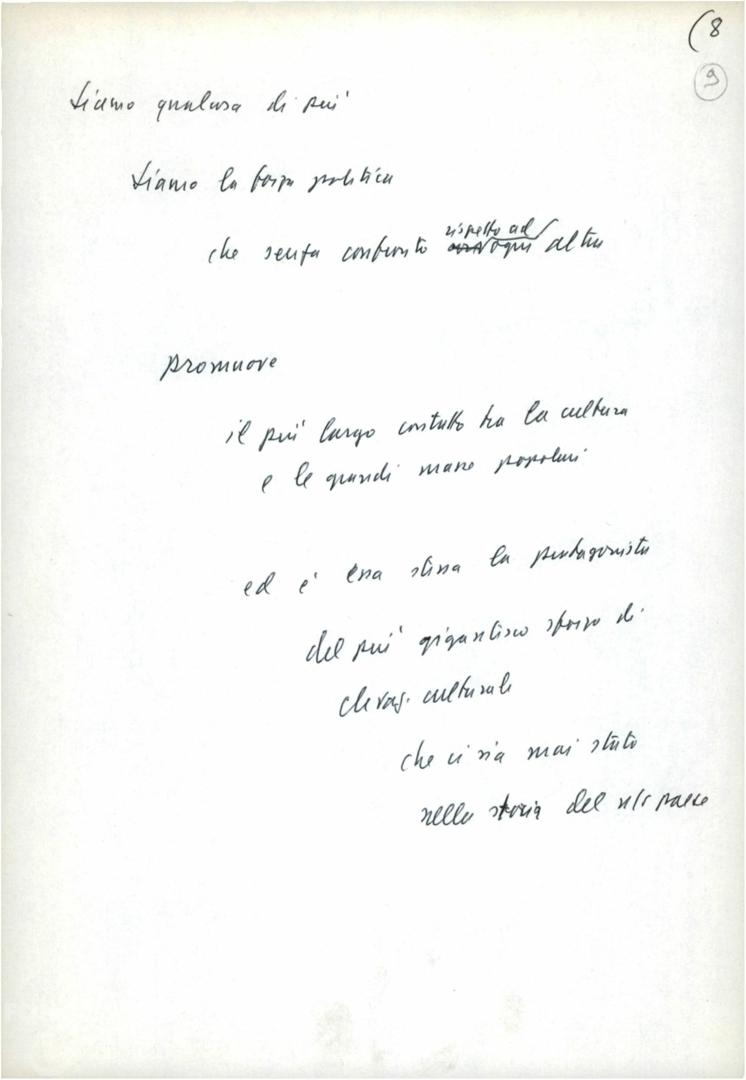 (8
9
Siamo qualcosa di più
Siamo la forza politica
rispetto ad
che senza confronto ogni altra
promuove
il più largo contatto tra la cultura
e le grandi masse popolari
ed è essa stessa la protagonista
del più gigantesco sforzo di
elevaz. culturale
che ci sia mai stato
nella storia del n/s paese